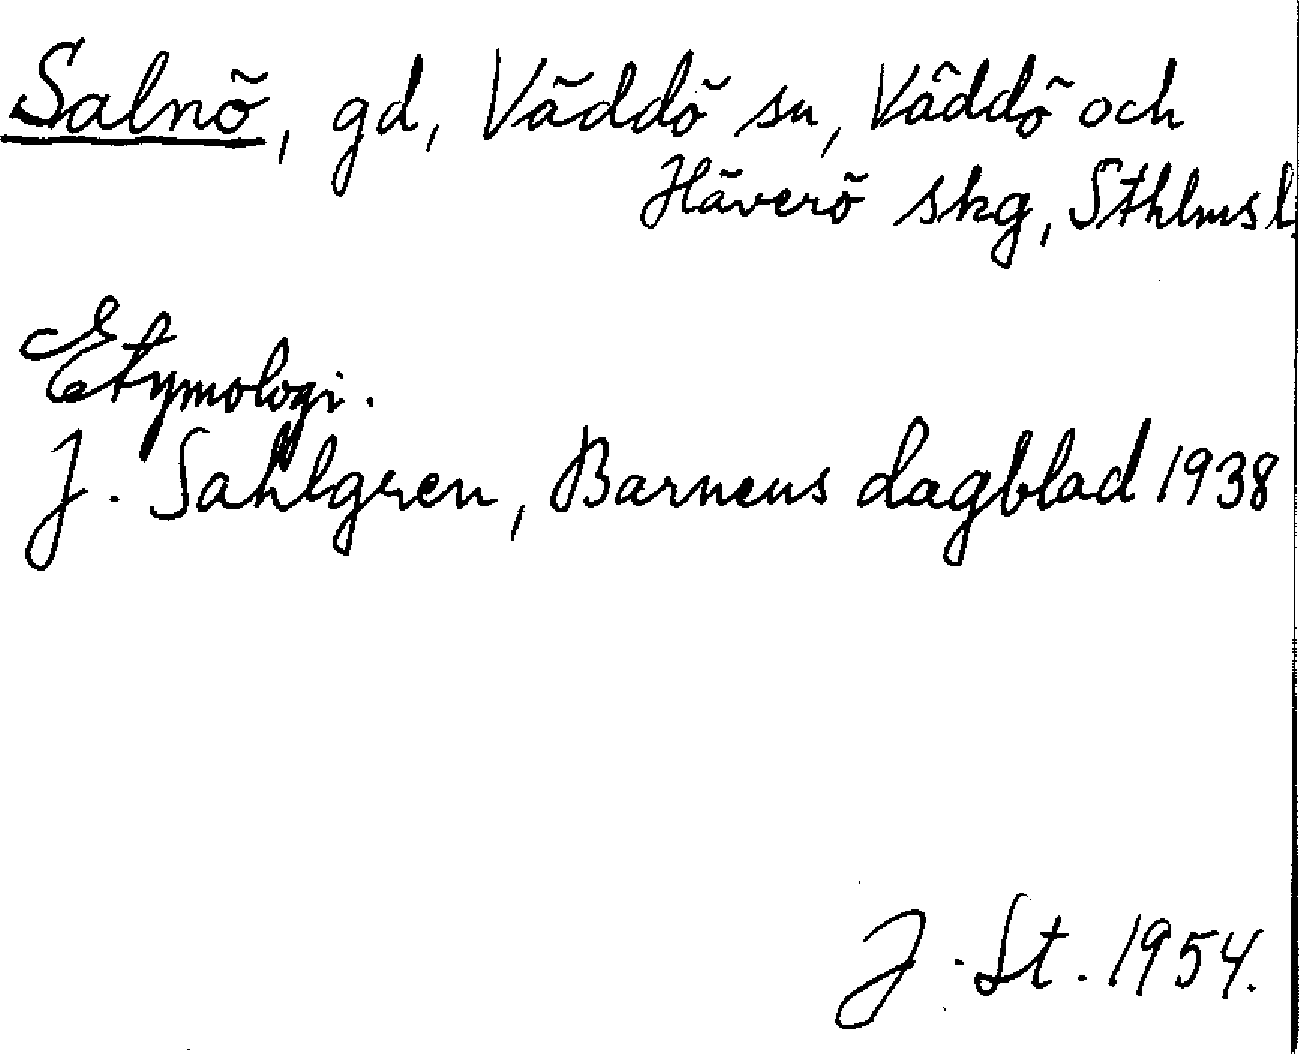 Salnö, gd, Väddö sn, Väddö och
Häverö skg, Sthlms l.
Etymologi.
J. Sahlgren, Barnens dagblad 1938
J. St. 1954.